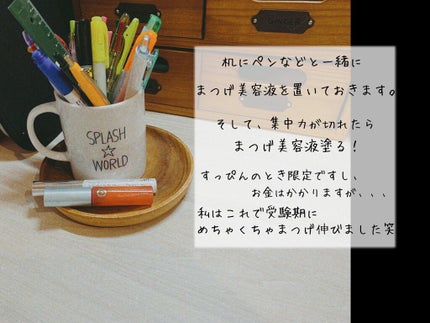 机にペンなどと一緒に
まつげ美容液を置いておきます。
そして、集中力が切れたら
まつげ美容液塗る!
すっぴんのとき限定ですし、
お金はかかりますが、、、
私はこれで受験期に
めちゃくちゃまつげ伸びました笑
GINGER
SPLASH
WORLD